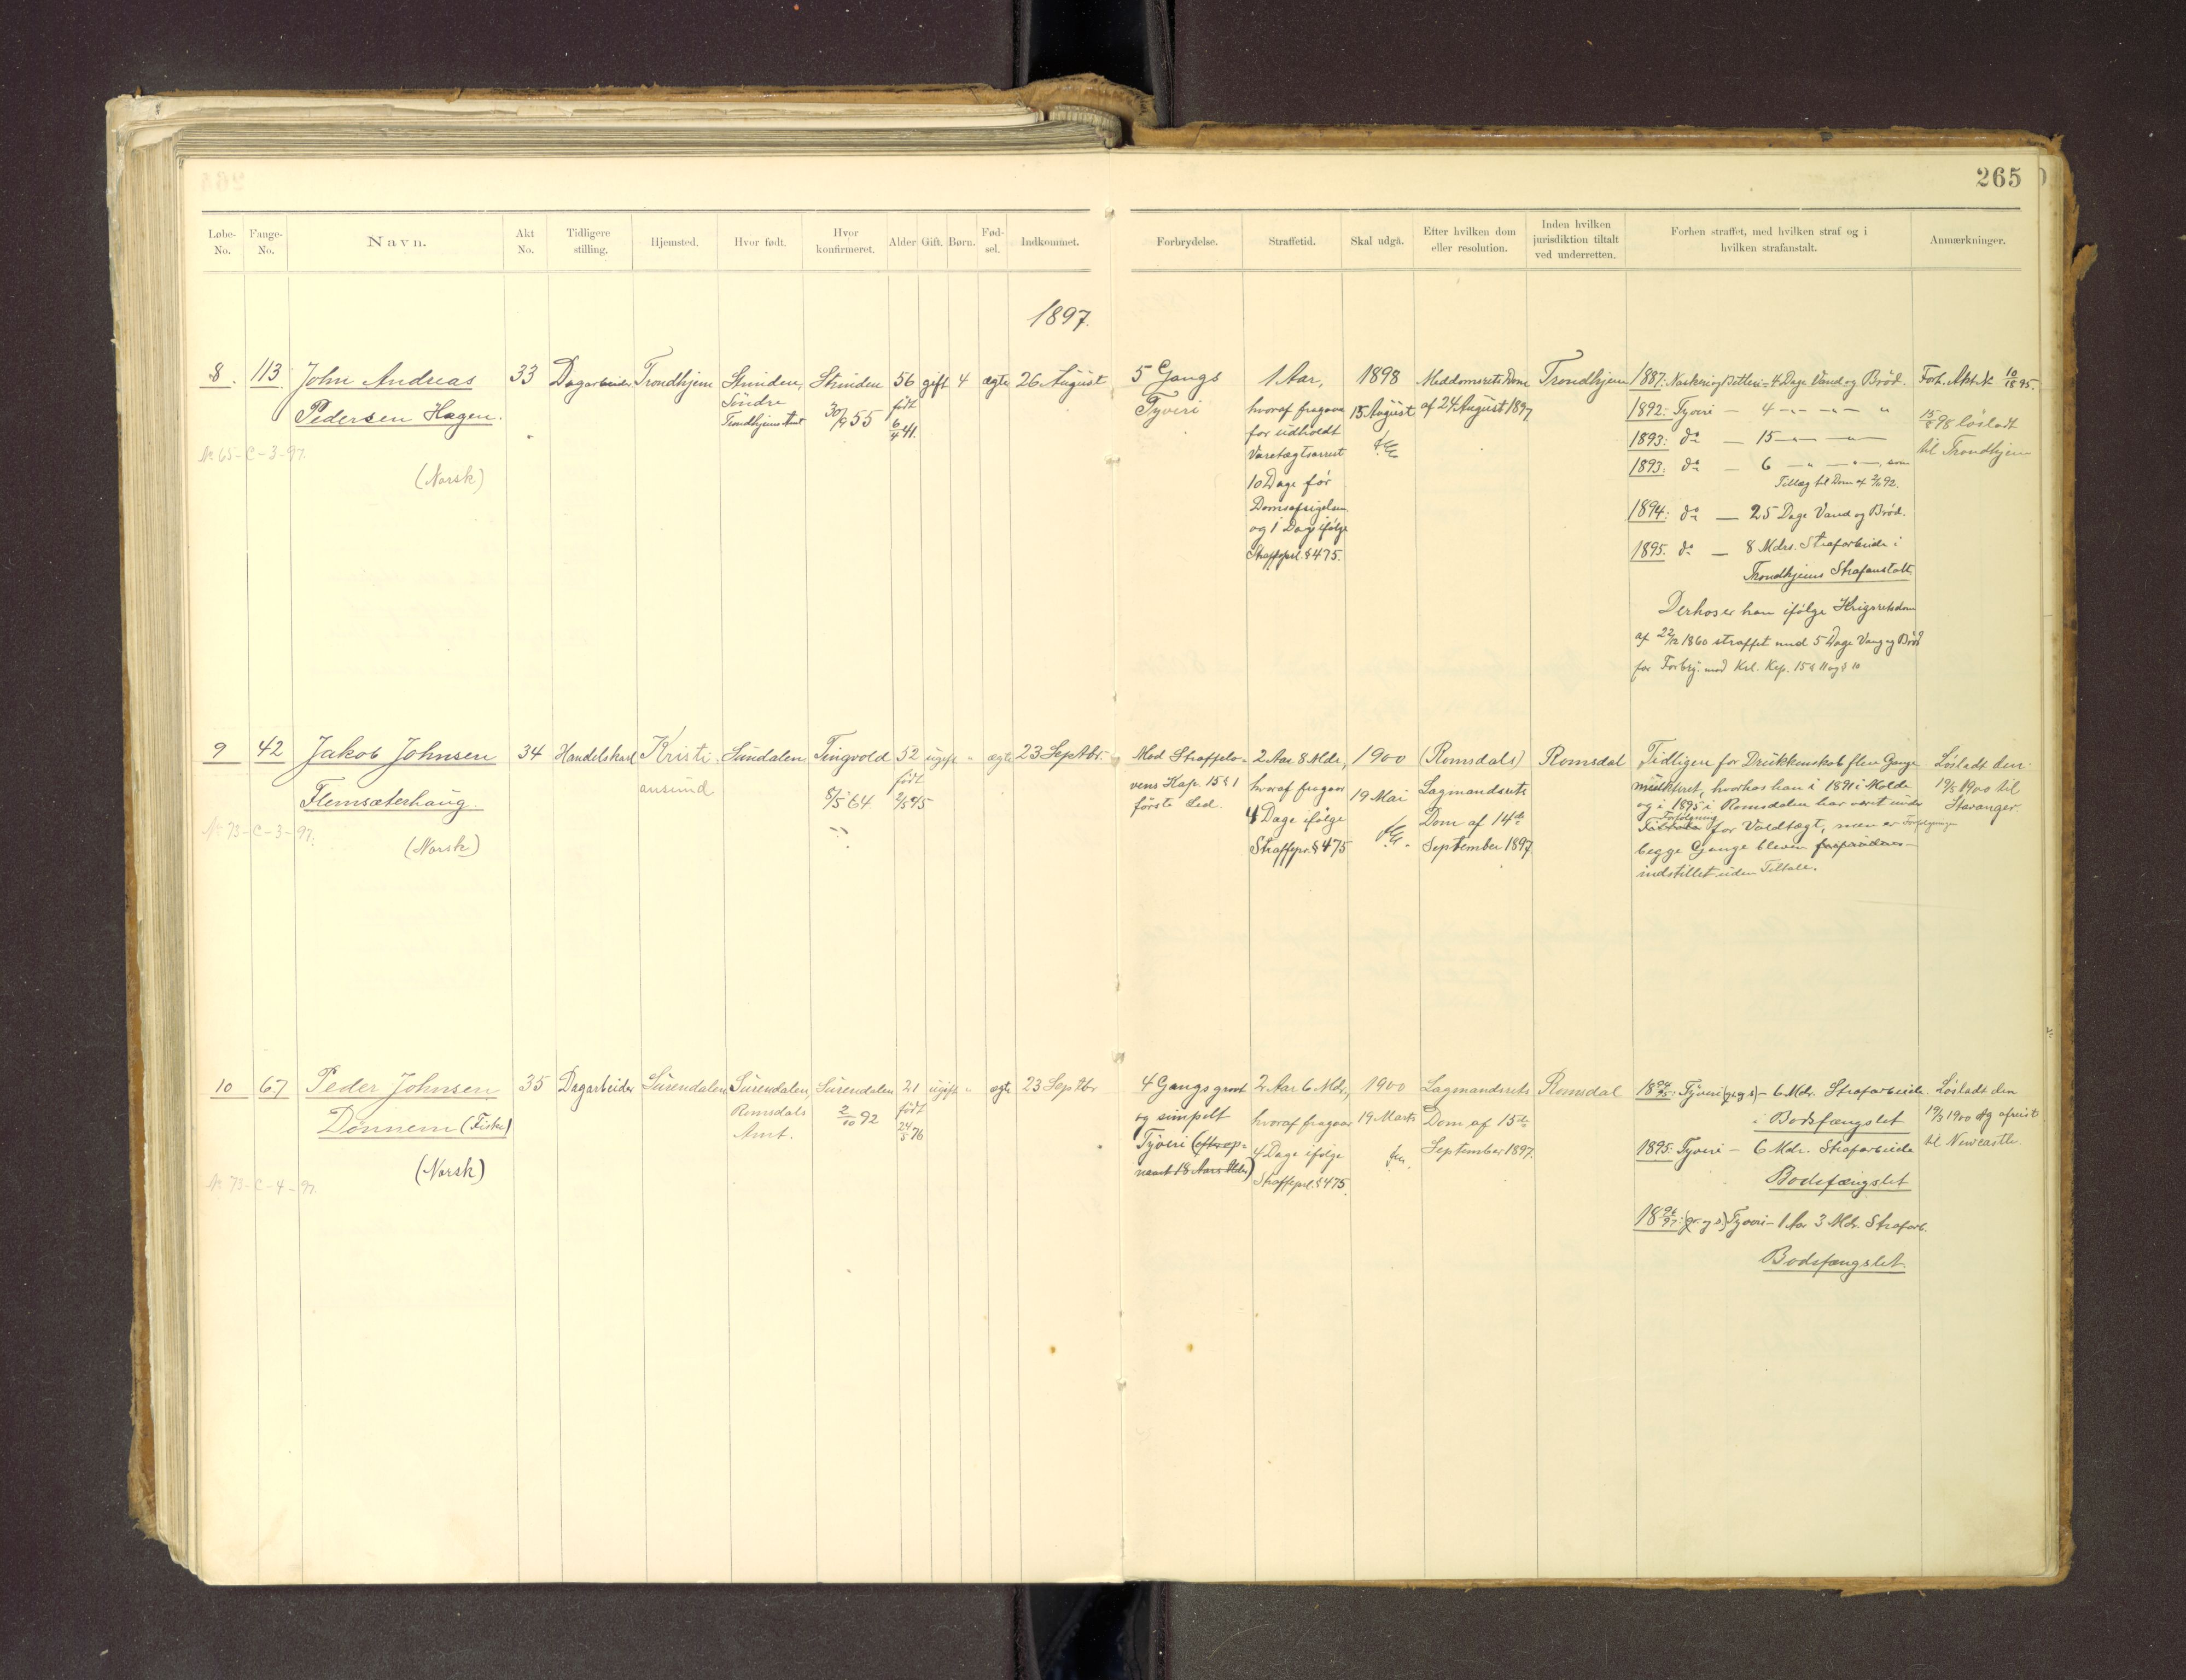 265
Løbe-No.
Fange-No.
Navn.
Akt No.
Tidligere stilling.
Hjemsted.
Hvor født.
Hvor konfirmeret.
Alder
Gift.
Børn.
Fød-sel.
Indkommet.
Forbrydelse.
Straffetid.
Skal udgå.
Efter hvilken dom eller resolution.
Inden hvilken jurisdiktion tiltalt ved underretten.
Forhen straffet, med hvilken straf og i hvilken strafanstalt.
Anmærkninger.
1897.
8.
113.
John Andreas
Pedersen Hagen.
(Norsk)
№ 65-C-3-97.
33
Dagarbeider
Trondhjem
Strinden,
Søndre
Trondhjems Amt
Strinden
30/9 55
56
født
6/4 41.
gift
4
ægte
26 August
5 Gangs
Tyveri
1 Aar,
hvoraf fragaar
for udholdt
Varetægtsarrest
10 Dage før
Domsafsigelsen
og 1 Dag ifølge
Straffeprl. § 475.
1898
15 August
Meddomsrets Dom
af 24 August 1897
Trondhjem
1887: Naskeri og Betleri - 4 Dage Vand og Brød.
1892: Tyveri - 4 -"- -"- "
1893: do - 15 -"- -"-
1893: do - 6 -"- -"-, som
Tillæg til Dom af 92.
1894: do - 25 Dage Vand og Brød.
1895. do - 8 Mdrs. Strafarbeide i
Trondhjems Strafanstalt
Derhos er han ifølge Krigsretsdom
af 22/12 1860 straffet med 5 Dage Vand og Brød
for Forbry. mod Krl. Kap. 15 § 11 og § 10
Forh. Akt №
15/8 98 løsladt
til Trondhjem
9
42
Jakob Johnsen
Flemsæterhaug.
(Norsk)
№ 73-C-3-97.
34
Handelskarl
Kristi-
ansund
Sundalen
Tingvold
8/5 64
52
født
2/5 45
ugift
"
ægte
23 Septbr.
Mod Straffelo-
vens Kap. 15 § 1
første Led.
2 Aar 8 Mdr.,
hvoraf fragaar
4 Dage ifølge
Straffepr. § 475
1900
19 Mai
(Romsdals)
Lagmandsrets
Dom af 14de
September 1897.
Romsdal
Tidligere for Drukkenskab flere Gange
mulkteret, hvorhos han i 1891 i Molde
og i 1895 i Romsdalen har været under
Forfølgning
for Voldtægt, men er Forfølgningen
begge Gange bleven
indstillet uden Tiltale.
Løsladt den
19/5 1900 til
Stavanger
10
67
Peder Johnsen
Dønnem (Fiske)
(Norsk)
№ 73-C-4-97.
35
Dagarbeider
Surendalen
Surendalen,
Romsdals
Amt.
Surendalen
2/10 92
21
født
24/5 76
ugift
"
ægte
23 Septbr
4 Gangs grovt
og simpelt
Tyveri (efter op-
naaet 18 Aars Alder)
2 Aar 6 Mdr.,
hvoraf fragaar
4 Dage ifølge
Straffeprl. § 475.
1900
19 Marts
Lagmandsrets
Dom af 15de
September 1897.
Romsdal
18 94/95: Tyveri (gr. og s) - 6 Mdr. Strafarbeide
i Bodsfængslet
1895: Tyveri - 6 Mdr. Strafarbeide
Bodsfængslet
18 96/97: (gr. og s) Tyveri - 1 Aar 3 Mdr. Strafarb.
Bodsfængslet
Løsladt den
19/3 1900 og afreist
til Newcastle.